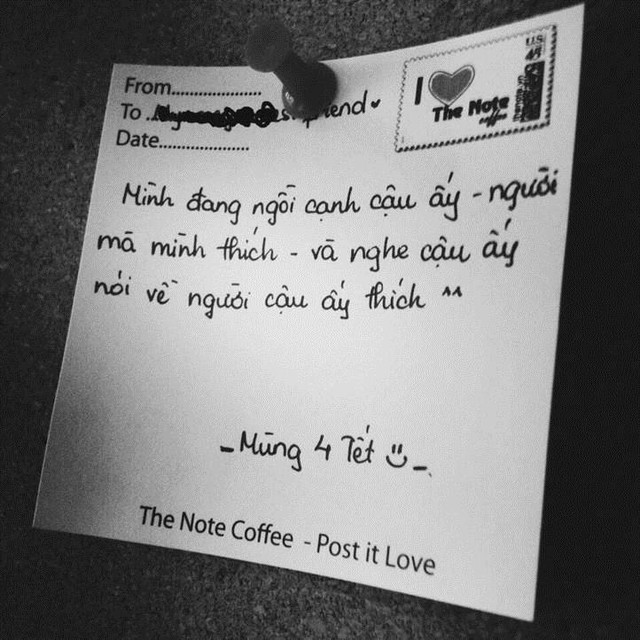 From....................
To
Date....................
I
The Note
coffee
U.S.
49
Mình đang ngồi cạnh cậu ấy - người
mà mình thích - và nghe cậu ấy
nói về người cậu ấy thích ^^
- Mùng 4 Tết -
The Note Coffee - Post it Love